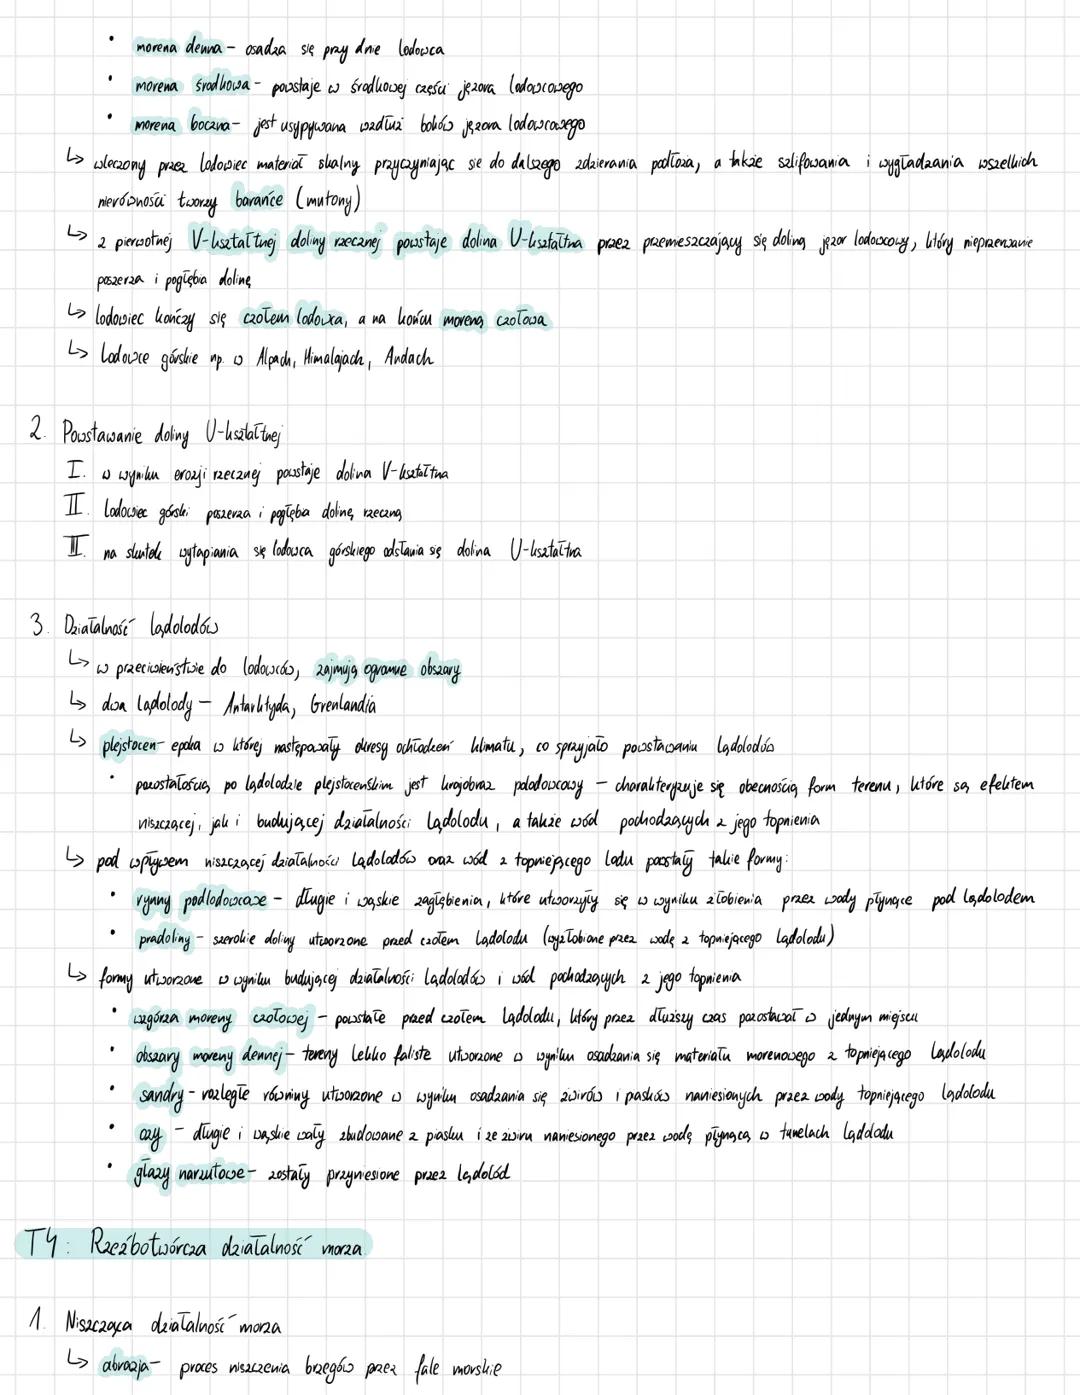 • morena denna – osadza się przy dnie lodowca
• morena środkowa – powstaje w środkowej części jęzora lodowcowego
• morena boczna – jest usypywana wzdłuż boków jęzora lodowcowego
↳ wleczony przez lodowiec materiał skalny przyczyniając się do dalszego zdzierania podłoża, a także szlifowania i wygładzania wszelkich
nierówności tworzy barańce (mutony)
↳ z pierwotnej V-kształtnej doliny rzecznej powstaje dolina U-kształtna przez przemieszczający się doliną jęzor lodowcowy, który nieprzerwanie
poszerza i pogłębia dolinę
↳ lodowiec kończy się czołem lodowca, a na końcu moreną czołową
↳ Lodowce górskie np. w Alpach, Himalajach, Andach
2. Powstawanie doliny U-kształtnej
I. w wyniku erozji rzecznej powstaje dolina V-kształtna
II. Lodowiec górski poszerza i pogłębia dolinę rzeczną
III. na skutek wytapiania się lodowca górskiego odsłania się dolina U-kształtna
3. Działalność lądolodów
↳ w przeciwieństwie do lodowców, zajmują ogromne obszary
↳ dwa lądolody – Antarktyda, Grenlandia
↳ plejstocen – epoka w której następowały okresy ochłodzeń klimatu, co sprzyjało powstawaniu lądolodów
• pozostałością po lądolodzie plejstoceńskim jest krajobraz polodowcowy – charakteryzuje się obecnością form terenu, które są efektem
niszczącej, jak i budującej działalności lądolodu, a także wód pochodzących z jego topnienia
↳ pod wpływem niszczącej działalności lądolodów oraz wód z topniejącego lodu powstały takie formy:
• rynny podlodowcowe – długie i wąskie zagłębienia, które utworzyły się w wyniku żłobienia przez wody płynące pod lądolodem
• pradoliny – szerokie doliny utworzone przed czołem lądolodu (wyżłobione przez wodę z topniejącego lądolodu)
↳ formy utworzone w wyniku budującej działalności lądolodów i wód pochodzących z jego topnienia
• wzgórza moreny czołowej – powstałe przed czołem lądolodu, który przez dłuższy czas pozostawał w jednym miejscu
• obszary moreny dennej – tereny lekko faliste utworzone w wyniku osadzania się materiału morenowego z topniejącego lądolodu
• sandry – rozległe równiny utworzone w wyniku osadzania się żwirów i piasków naniesionych przez wody topniejącego lądolodu
• ozy – długie i wąskie wały zbudowane z piasku i ze żwiru naniesionego przez wodę płynącą w tunelach lądolodu
• głazy narzutowe – zostały przyniesione przez lądolód
T4: Rzeźbotwórcza działalność morza.
1. Niszcząca działalność morza
↳ abrazja – proces niszczenia brzegów przez fale morskie